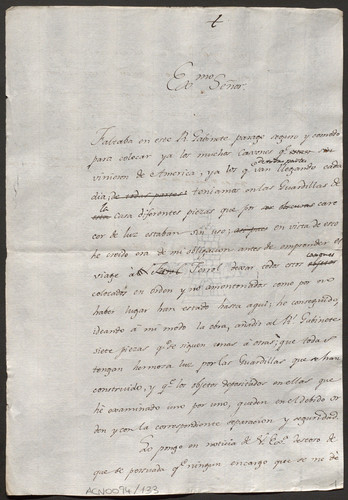 +
Ex.mo Señor.
Faltaba en este R. Gabinete parage seguro y comodo
para colocar ya los muchos caxones q.e
vinieron de America, ya los q.e van llegando cada
de otras partes
dia; de todas partes: teniamos en las Guardillas de
la
esta Casa diferentes piezas que por obscuras care
cer de luz estaban sin uso; en vista de esto
he creido era de mi obligacion antes de emprender el
viage à Ferrol dexar todos estos caxones
colocados en orden y no amontonados como por no
haber lugar han estado hasta aqui; he conseguido,
ideando à mi modo la obra, añadir al R.l Gabinete
siete piezas q.e se siguen unas à otras; que todas
tengan hermosa luz por las Guardillas que se han
construido, y q.e los objetos depositados en ellas que
he examinado uno por uno, queden en el debido or
den y con la correspondiente separacion y seguridad.
Lo pongo en noticia de V. Ex.a deseoso de
que se persuada q.e ningun encargo que se me dé
ACN0094/133